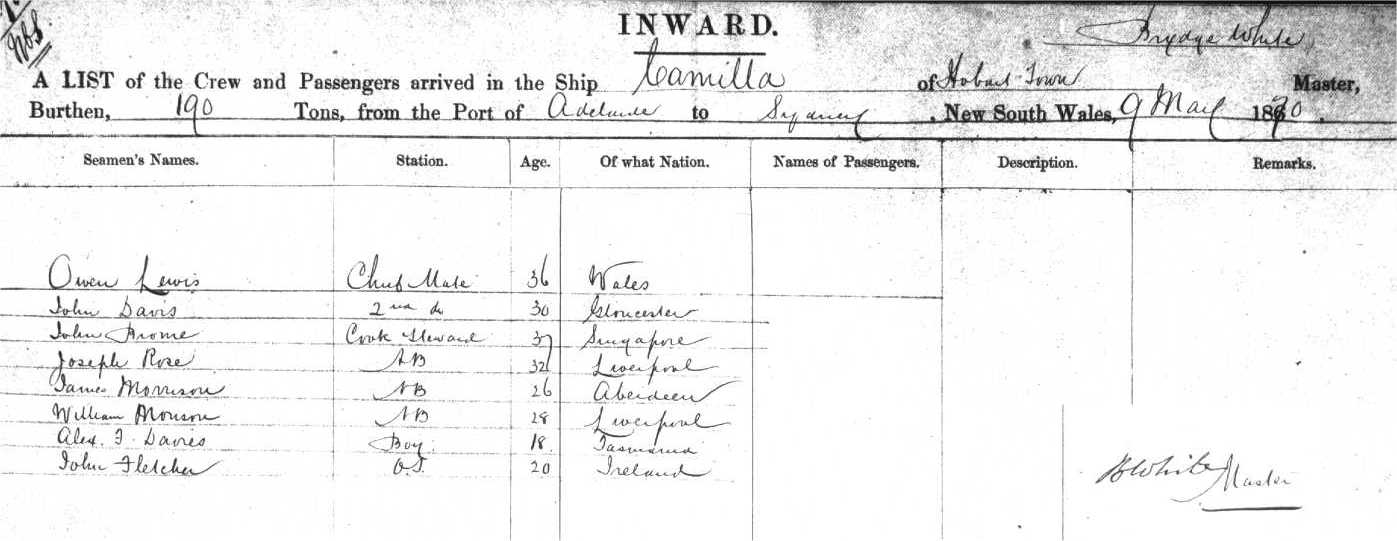 INWARD.
Brydge White
A LIST of the Crew and Passengers arrived in the Ship Camilla of Hobart Town Master,
Burthen, 190 Tons, from the Port of Adelaide to Sydney, New South Wales, 9 May 1870.
Seamen's Names. Station. Age. Of what Nation. Names of Passengers. Description. Remarks.
Owen Lewis Chief Mate 36 Wales
John Davis 2nd do 30 Gloucester
John Frome Cook Steward 37 Singapore
Joseph Rose AB 32 Liverpool
James Morrison AB 26 Aberdeen
William Monson AB 28 Liverpool
Alex. F. Davies Boy 18. Tasmania
John Fletcher O.S. 20 Ireland
BWhite Master